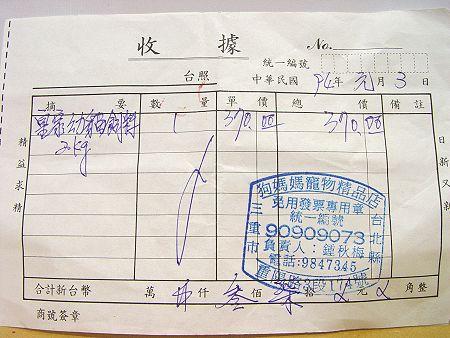 收據 No.
統一編號
台照 中華民國 94年 元月 3日
摘要 數量 單價 總價 備註
皇家幼貓飼料 1 370.00 370.00
2kg
精益求精
日新又新
狗媽媽寵物精品店
免用發票專用章
統一編號
90909073
負責人:鍾秋梅
電話:9847345
重陽路3段174號
三重市
台北縣
合計新台幣 萬 仟 叁佰 柒拾 元 角整
商號簽章